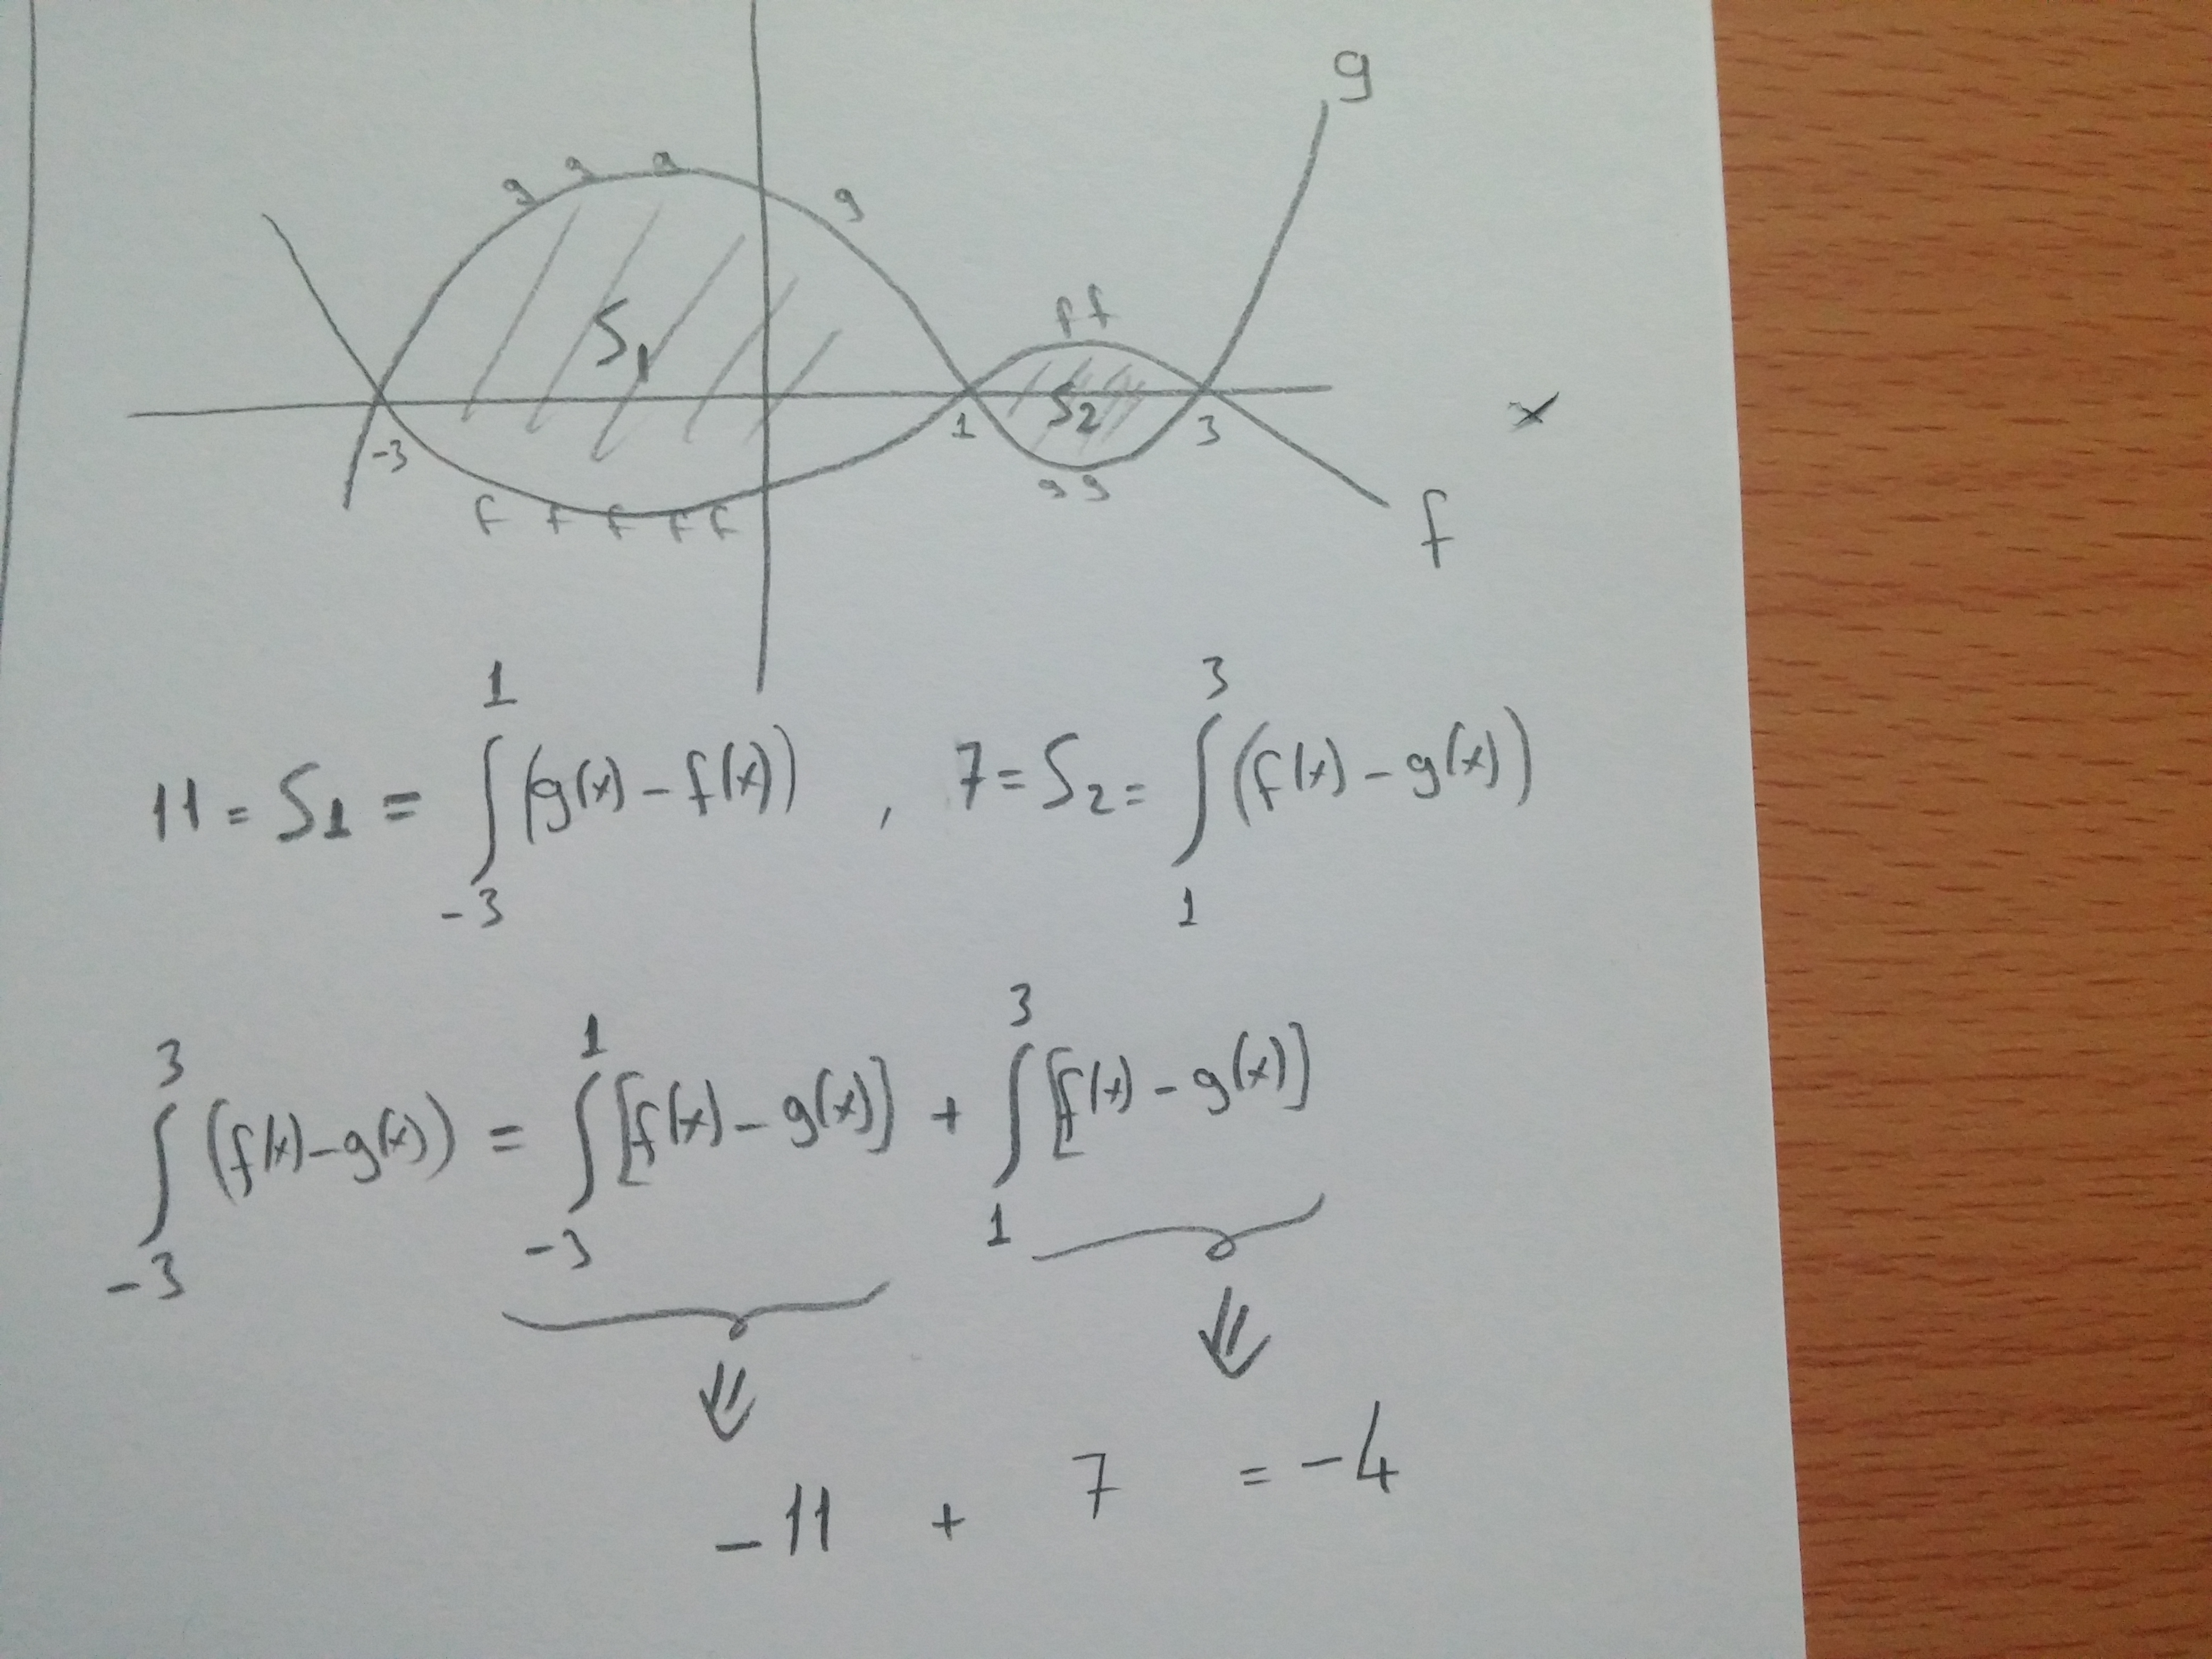 g
g g g g
S1
f f
-3 1 S2 3 x
g g
f f f f f
f
11 = S1 = ∫_{-3}^{1} (g(x) - f(x)) , 7 = S2 = ∫_{1}^{3} (f(x) - g(x))
∫_{-3}^{3} (f(x) - g(x)) = ∫_{-3}^{1} [f(x) - g(x)] + ∫_{1}^{3} [f(x) - g(x)]
-11 + 7 = -4